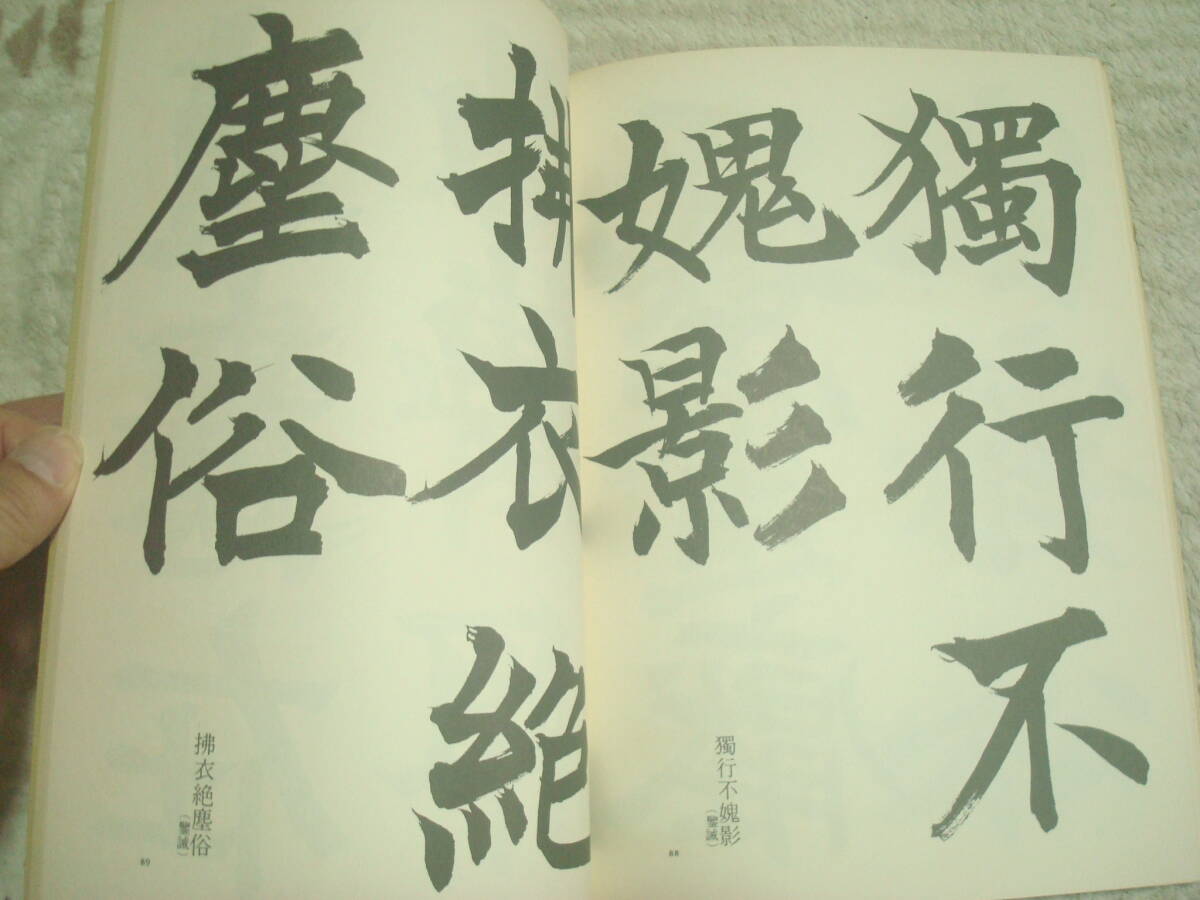 獨行不
媿影
獨行不媿影
（鑒誡）
88
拂衣絶
塵俗
拂衣絶塵俗
（鑒誡）
89